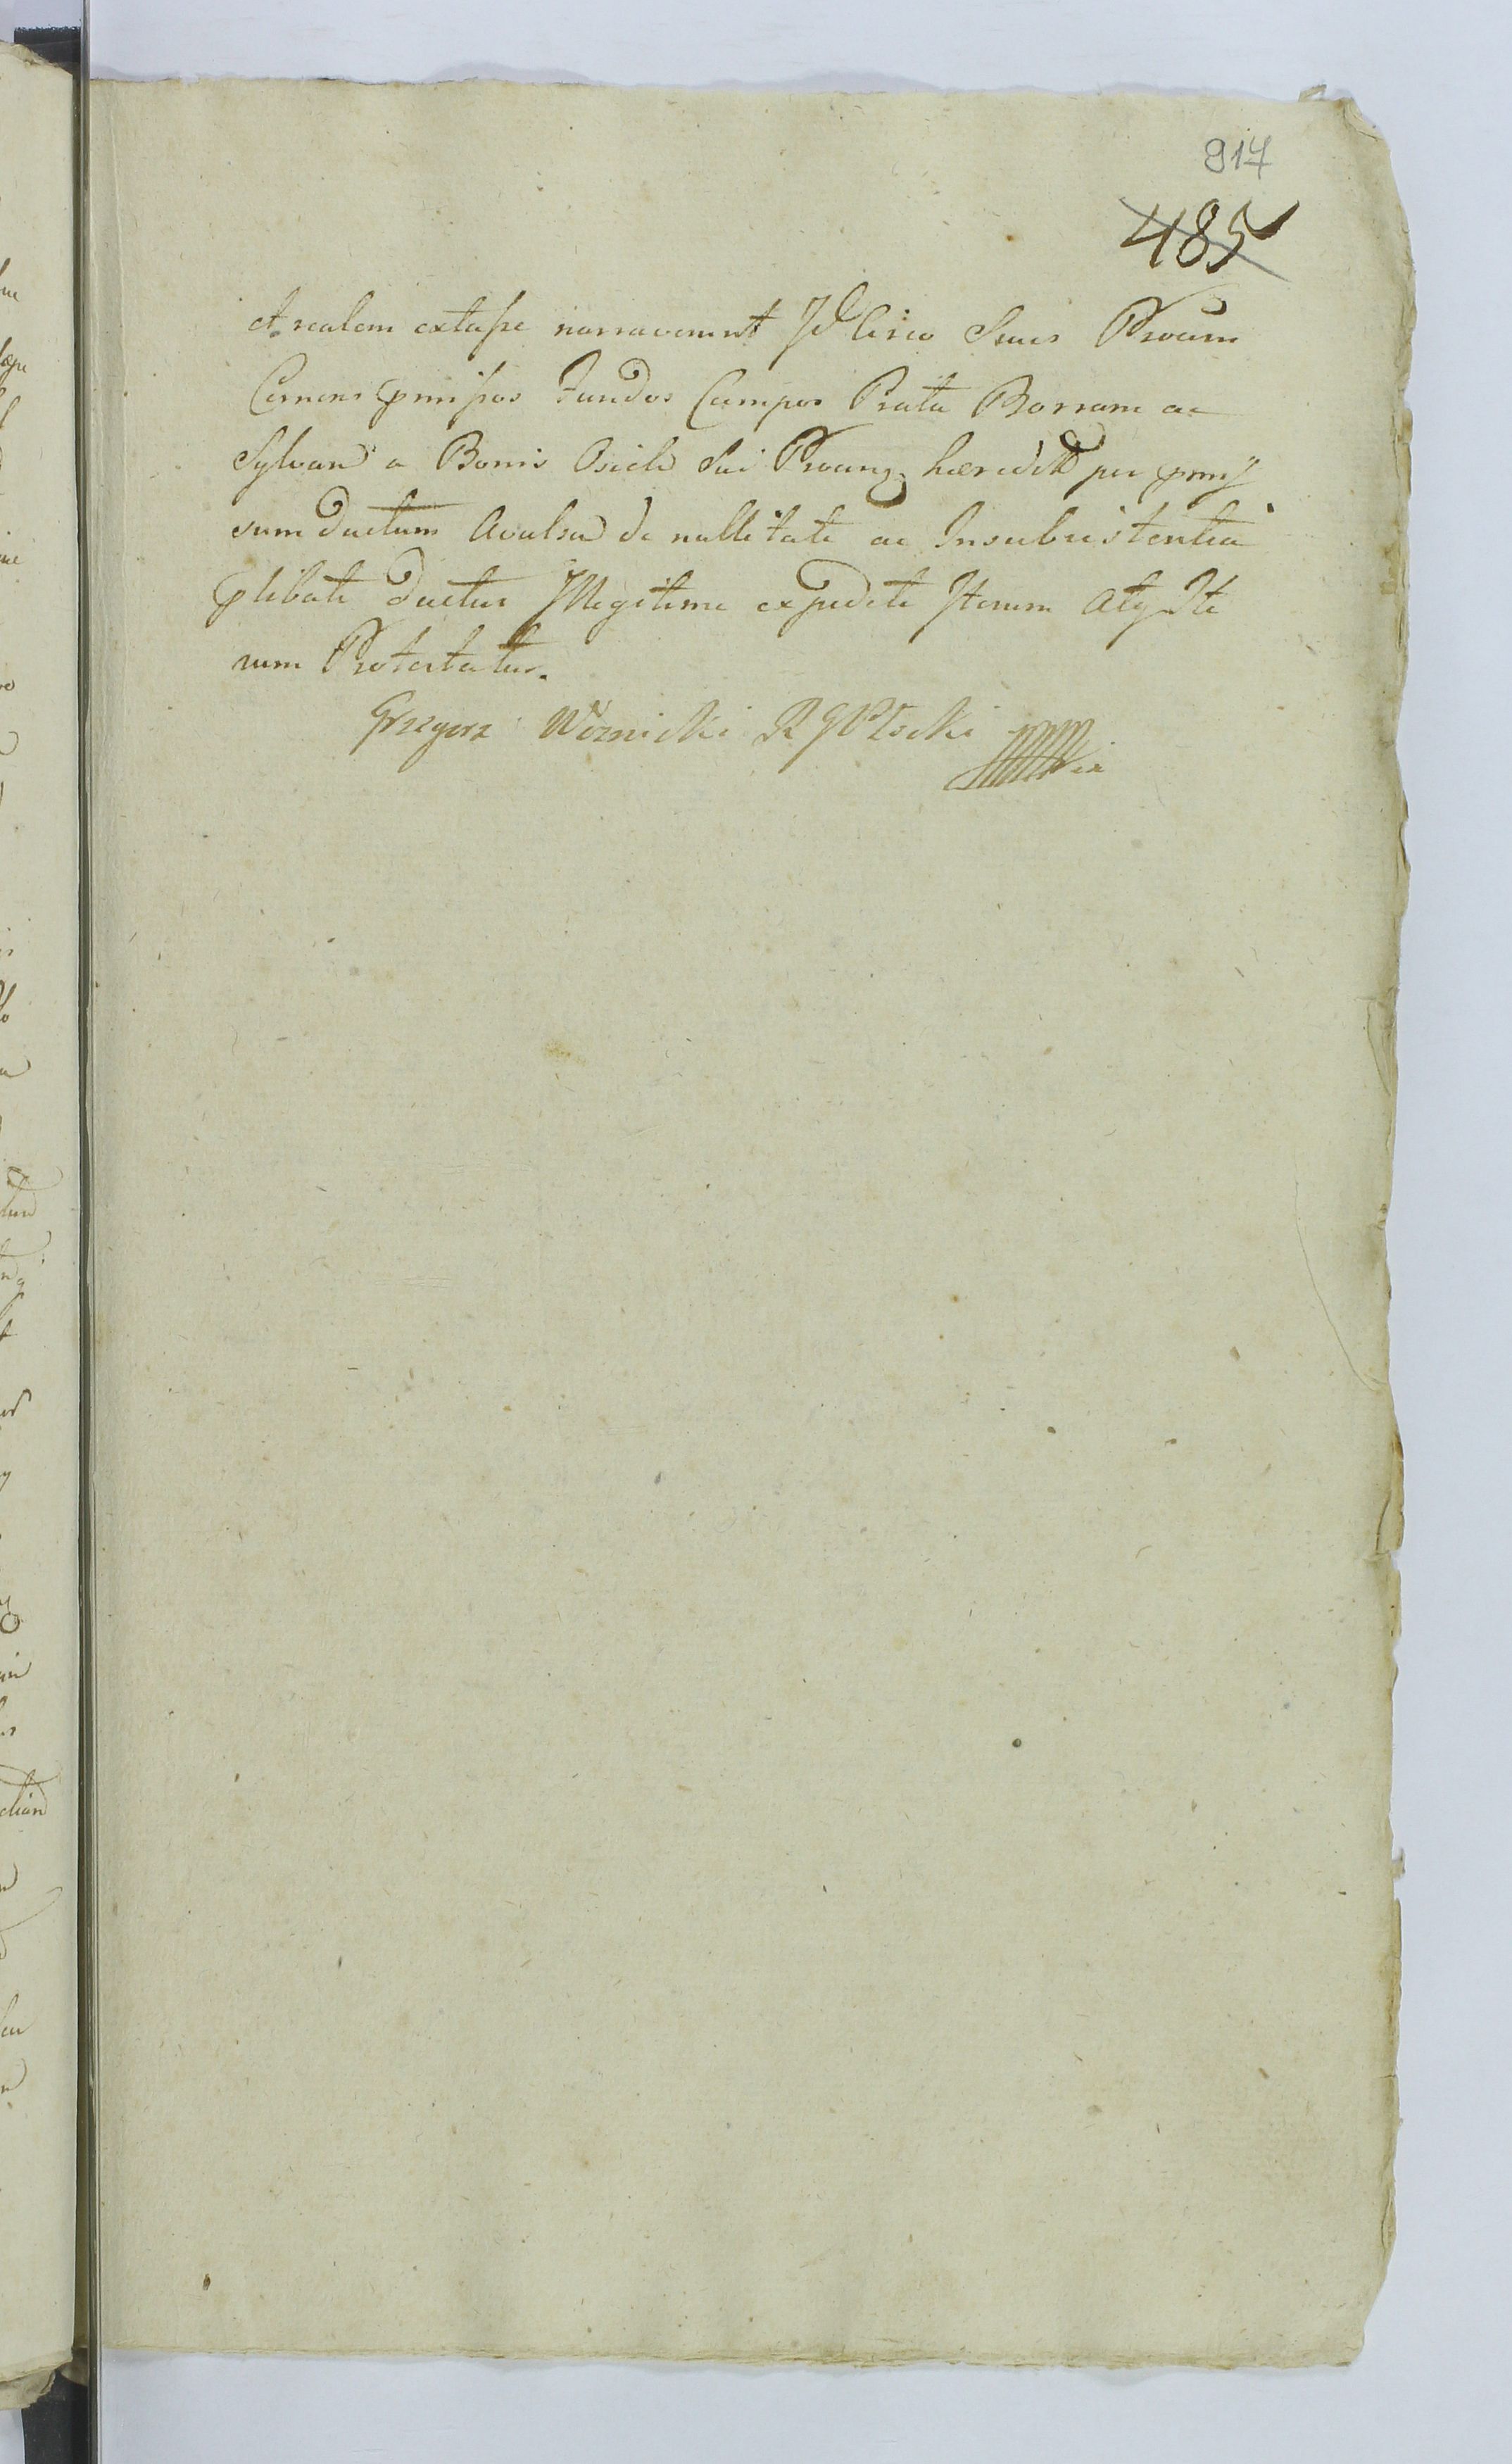 917
485
et realem extasse narraverunt Id Circo Suus Proūm
Cernens pmissos Fundos Campos Prata Borram ac
Sylvam a Bonis Osiek Sui Proung. hæredit per pmis
sum ductum Avulsa de nullitate ac Insubsistentia
plibati ductus Illegitime expediti Iterum Atq Ite
rum Protestatur.
Grzegorz Woznicki R G Płocki